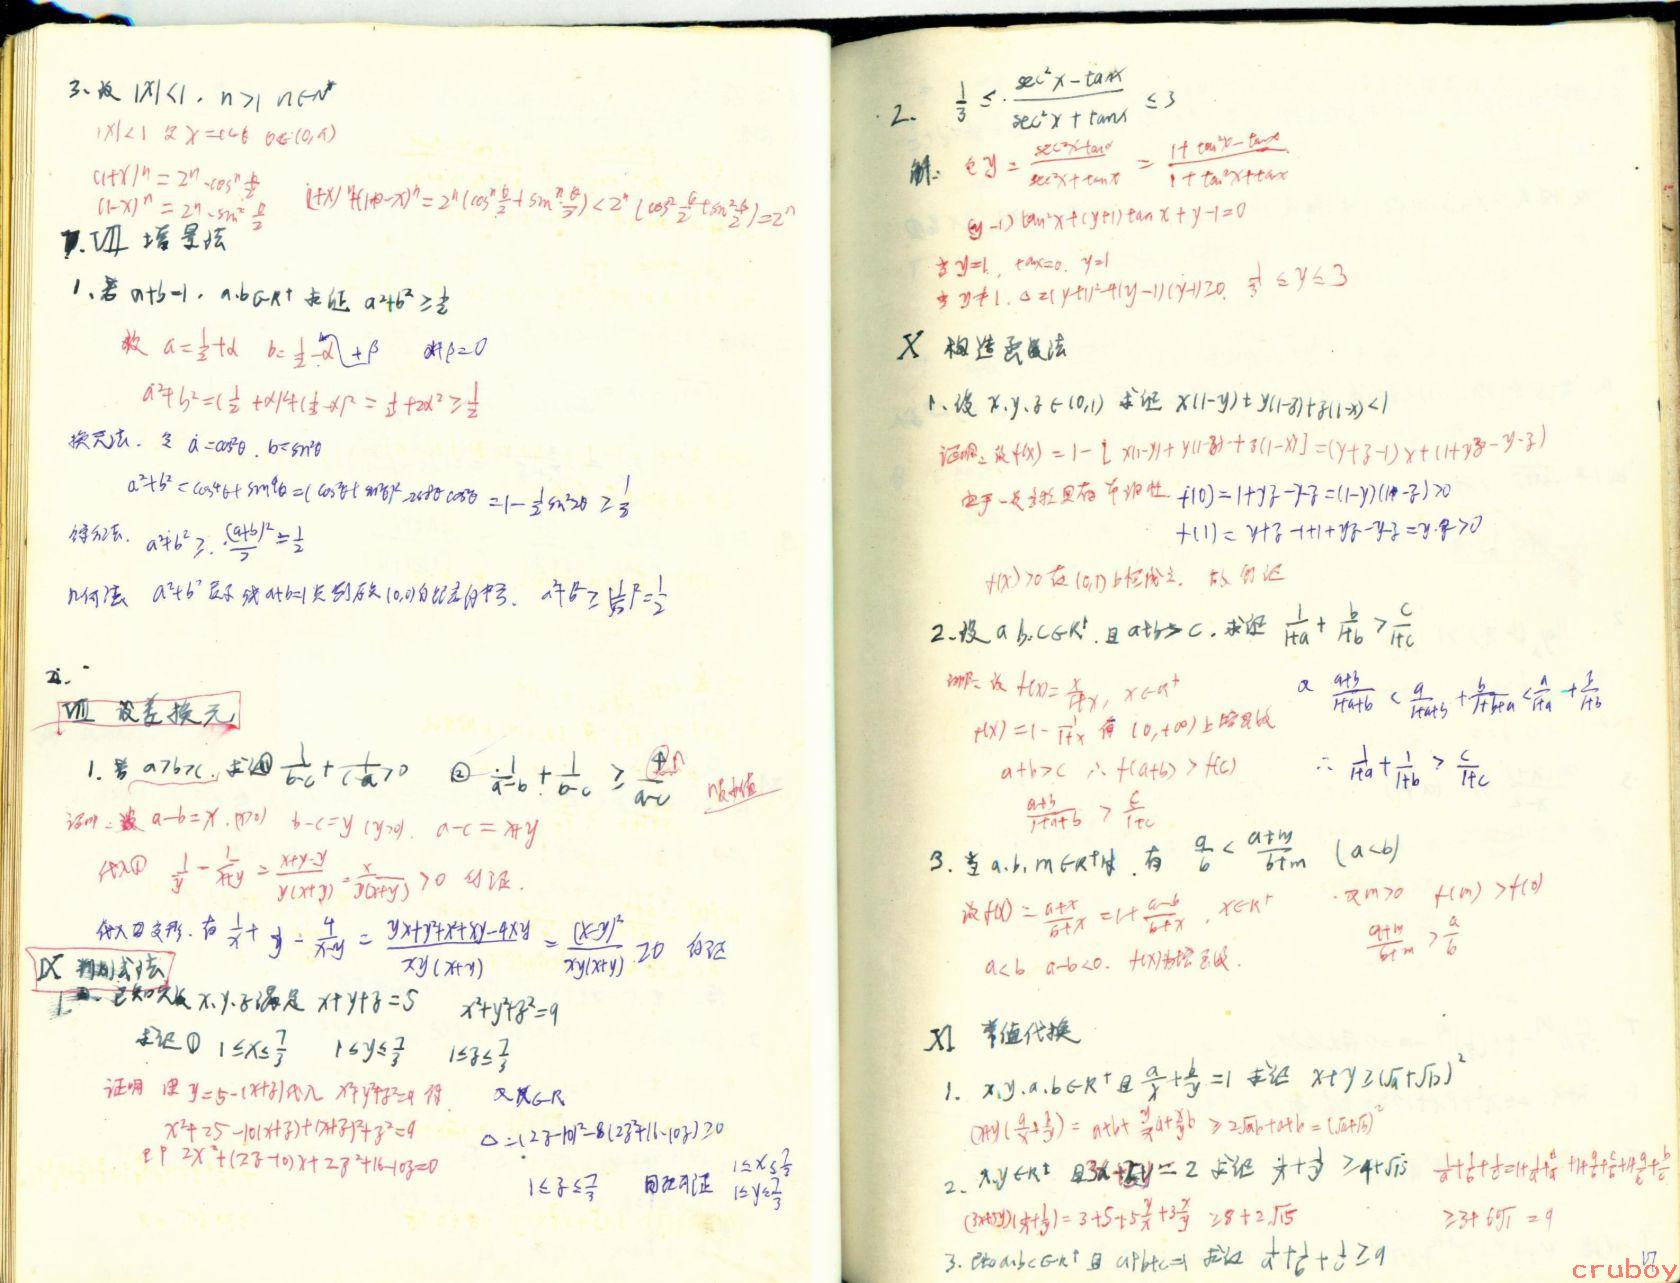 3、设 |x|<1, n>1 n∈N*
|x|<1 设 x=cosθ θ∈(0,π)
(1+x)ⁿ=2ⁿ·cosⁿ θ/2
(1-x)ⁿ=2ⁿ·sin² θ/2 (1+x)ⁿ+(1-x)ⁿ=2ⁿ(cosⁿ θ/2+sinⁿ θ/2)<2ⁿ(cos² θ/2+sin² θ/2)=2ⁿ
VII 增量法
1、若 a+b=1, a.b∈R⁺ 求证 a²+b²≥1/2
设 a=1/2+α b=1/2-α +β α+β=0
a²+b²=(1/2+α)²+(1/2-α)²=1/2+2α²≥1/2
换元法. 令 a=cos²θ. b=sin²θ
a²+b²=cos⁴θ+sin⁴θ=(cos²θ+sin²θ)²-2sin²θcos²θ=1-1/2sin²2θ≥1/2
a²+b²≥(a+b)²/2=1/2
几何法 a²+b² 表示 线 a+b=1 点到原点(0,0)的距离的平方.
VIII 设差换元
1、若 a>b>c. 求证① 1/(b-c)+1/(c-a)>0 ② 1/(a-b)+1/(b-c)≥4/(a-c)
证明: 设 a-b=x.(x>0) b-c=y (y>0). a-c=x+y
代入① 1/y-1/(x+y)=(x+y-y)/(y(x+y))=x/(y(x+y))>0 得证.
代入②变形. 有 (x-y)²/(xy(x+y))≥0 得证
IX 判别式法
1、已知实数 x.y.z满足 x+y+z=5 x²+y²+z²=9
求证① 1≤x≤7/3 1≤y≤7/3 1≤z≤7/3
证明 用 y=5-(x+z)代入 x²+y²+z²=9 得. 又 x∈R
x²+25-10(x+z)+(x+z)²+z²=9 Δ=(2z-10)²-8(2z²+16-10z)≥0
即 2x²+(2z-10)x+2z²+16-10z=0 1≤z≤7/3 同理可证 1≤x≤7/3
1≤y≤7/3
2. 1/3≤(sec²x-tanx)/(sec²x+tanx)≤3
解: 令 y=(sec²x-tanx)/(sec²x+tanx)=(1+tan²x-tanx)/(1+tan²x+tanx)
(y-1)tan²x+(y+1)tanx+y-1=0
当 y=1. tanx=0. y=1
当 y≠1. Δ=(y+1)²-4(y-1)(y-1)≥0. 1/3≤y≤3
X 构造函数法
1、设 x.y.z∈(0,1) 求证 x(1-y)+y(1-z)+z(1-x)<1
证明: 设 f(x)=1-[x(1-y)+y(1-z)+z(1-x)]=(y+z-1)x+(1+yz-y-z)
由于一次函数具有单调性 f(0)=1+yz-y-z=(1-y)(1-z)>0
f(1)=y+z-1+1+yz-y-z=y.z>0
f(x)>0 在 (0,1)内恒成立. 故得证
2、设 a.b.c∈R⁺. 且 a+b>c. 求证 1/(1+a)+b/(1+b)>c/(1+c)
证明: 设 f(x)=x/(1+x), x∈R⁺ (a+b)/(1+a+b)<a/(1+a+b)+b/(1+b+a)<a/(1+a)+b/(1+b)
f(x)=1-1/(1+x) 在 (0,+∞)上增函数
a+b>c ∴ f(a+b)>f(c) ∴ 1/(1+a)+1/(1+b)>c/(1+c)
(a+b)/(1+a+b)>c/(1+c)
3、当 a.b.m∈R⁺时. 有 a/b<(a+m)/(b+m) (a<b)
设 f(x)=(a+x)/(b+x)=1+(a-b)/(b+x), x∈R⁺ 又 m>0 f(m)>f(0)
a<b a-b<0. f(x)为增函数. (a+m)/(b+m)>a/b
XI 常值代换
1. x.y.a.b∈R⁺ 且 a/x+b/y=1 求证 x+y≥(√a+√b)²
(x+y)(a/x+b/y)=a+b+y/x a+x/y b≥2√ab+a+b=(√a+√b)²
2. x.y∈R⁺ 且 3x+5y=2 求证 1/x+1/y≥4+√15
(3x+5y)(1/x+1/y)=3+5+5y/x+3x/y≥8+2√15 ≥3+6√1=9
3. 已知a.b.c∈R⁺ 且 a+b+c=1 求证 1/a+1/b+1/c≥9
17
cruboy